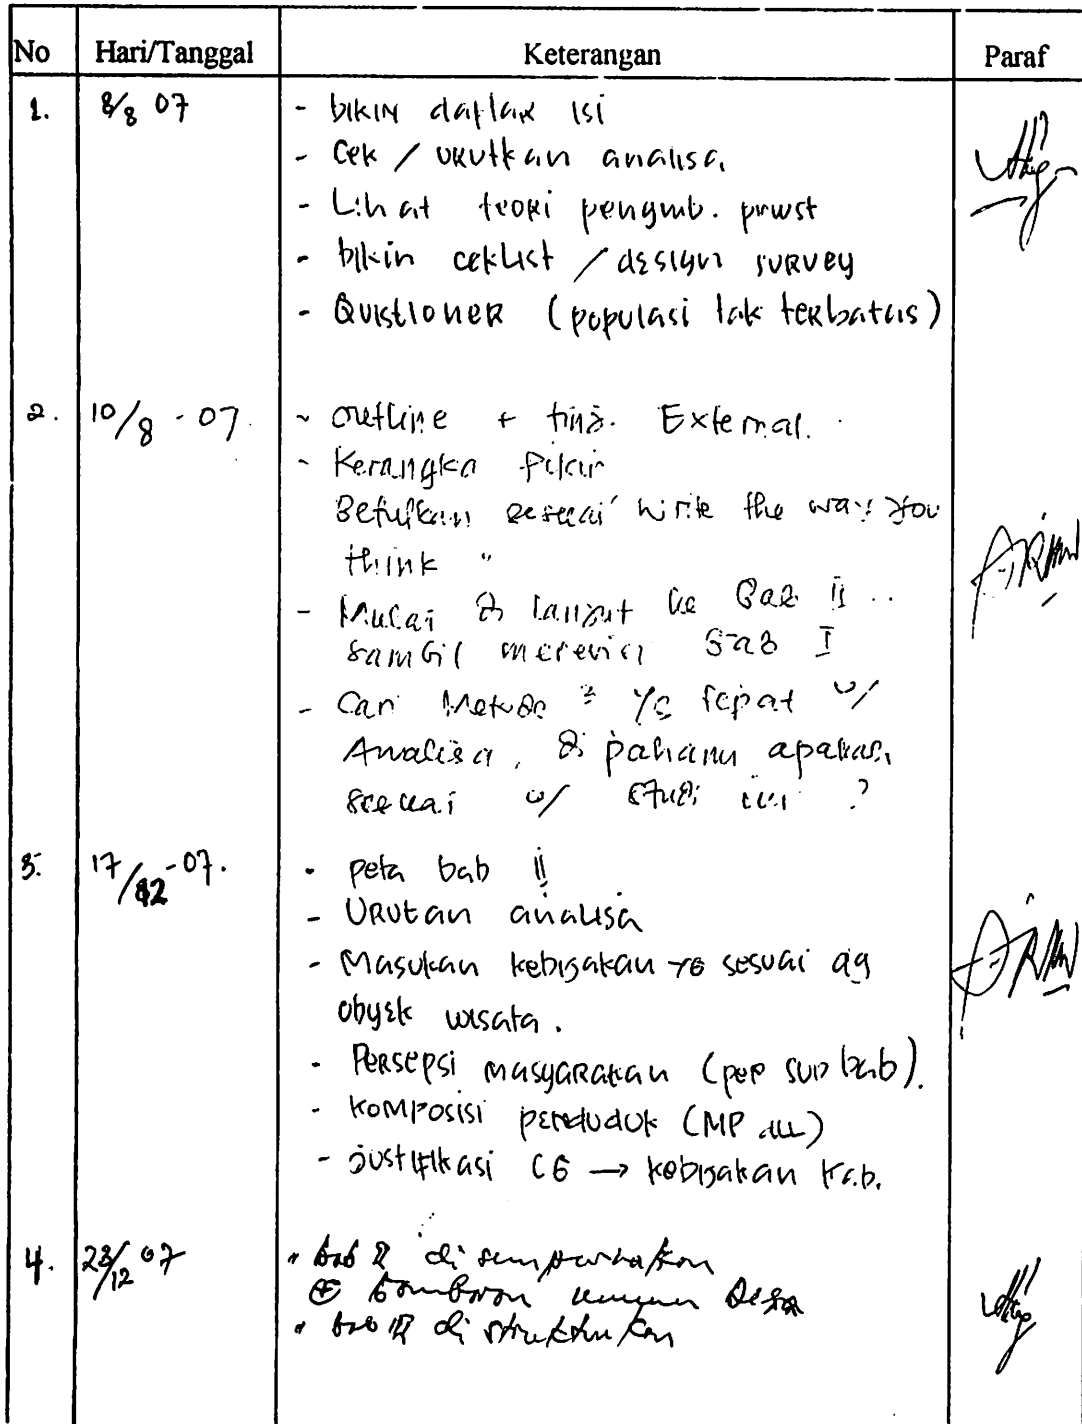 No Hari/Tanggal Keterangan Paraf
1. 8/8 07 - bikin daftar isi
- Cek / urutkan analisa
- Lihat teori pengmb.
- bikin ceklist / design survey
- Quistioner (populasi tak terbatas)
2. 10/8 - 07. - outline + External.
- Kerangka fikir
Betulkan sesuai write the way you
think "
- Mulai di lanjut ke Bab II ..
sambil Bab I
- Cari Metode ² yg tepat u/
Analisa, di pahami apakah
sesuai u/ studi ini ?
3. 17/12 - 07. - peta bab II
- Urutan analisa
- Masukan kebijakan yg sesuai dg
obyek wisata.
- Persepsi masyarakatan (per sub bab).
- Komposisi penduduk (MP dll)
- justifikasi → kebijakan Kab.
4. 28/12 07 • bab II di sempurnakan
umum Desa
• bab di strukturkan